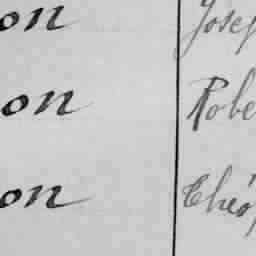 on Josep
on Robe
on Théop